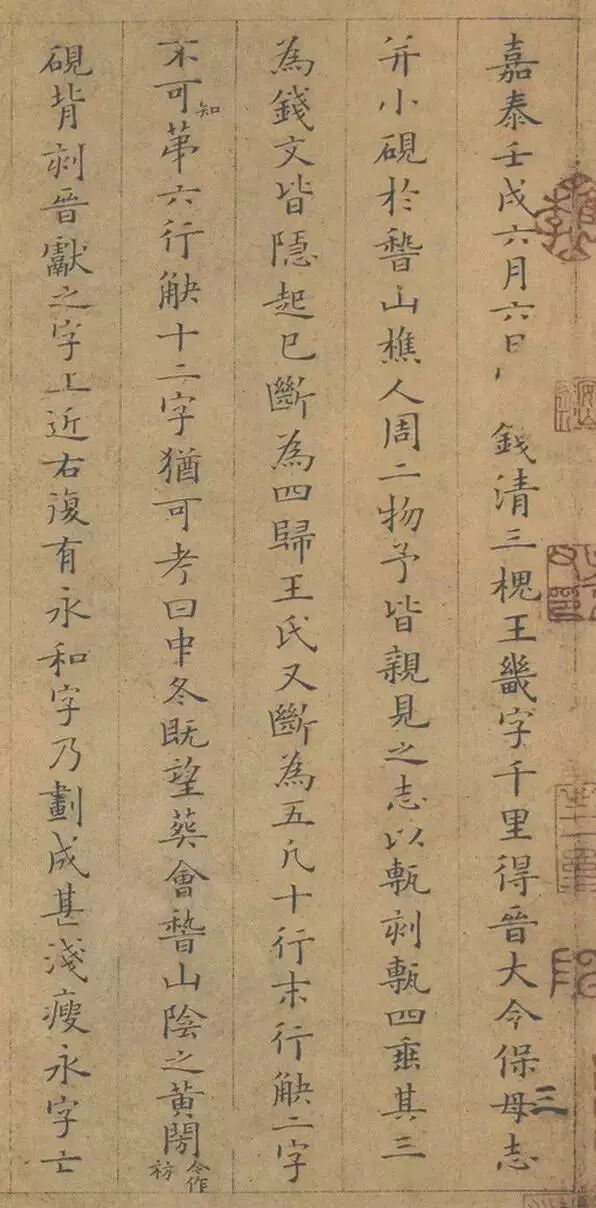 嘉泰壬戌六月六日 錢清三槐王畿字千里得晉大令保母志
并小硯於稽山樵人周二物予皆親見之志以甎刻甎四垂其三
為錢文皆隱起已斷為四歸王氏又斷為五凡十行末行缺二字
不可知苐六行缺十二字猶可考曰中冬既望葬會稽山陰之黃閍今作祊
硯背刻晉獻之字上近右復有永和字乃劃成甚淺瘦永字亡
三